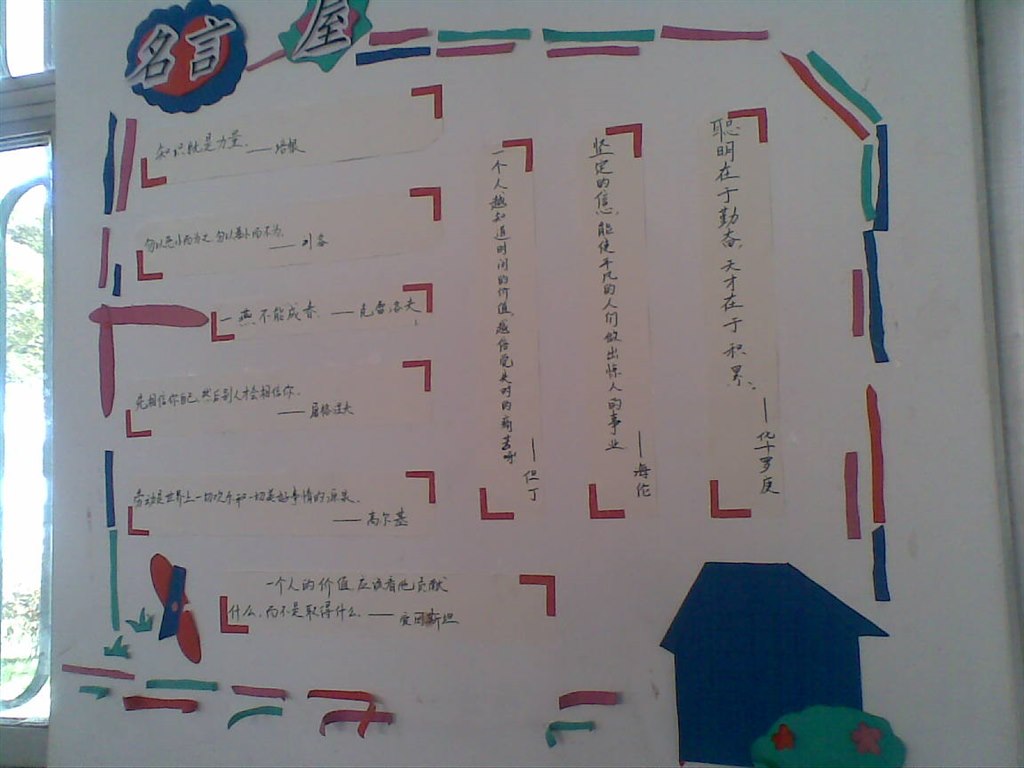 名言屋
知识就是力量。——培根
勿以恶小而为之,勿以善小而不为。
——刘备
一燕不能成春。——克雷洛夫
先相信你自己,然后别人才会相信你。
——屠格涅夫
劳动是世界上一切欢乐和一切美好事情的源泉。
——高尔基
一个人的价值,应该看他贡献
什么,而不是取得什么。——爱因斯坦
一个人越知道时间的价值,越倍觉失时的痛苦呀
——但丁
坚定的信念,能使平凡的人们做出惊人的事业
——海伦
聪明在于勤奋,天才在于积累。
——华罗庚